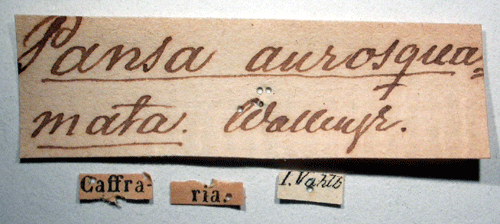 Pansa aurosqua=
mata. Wallengr.
Caffra-
ria.
I. Vahlb